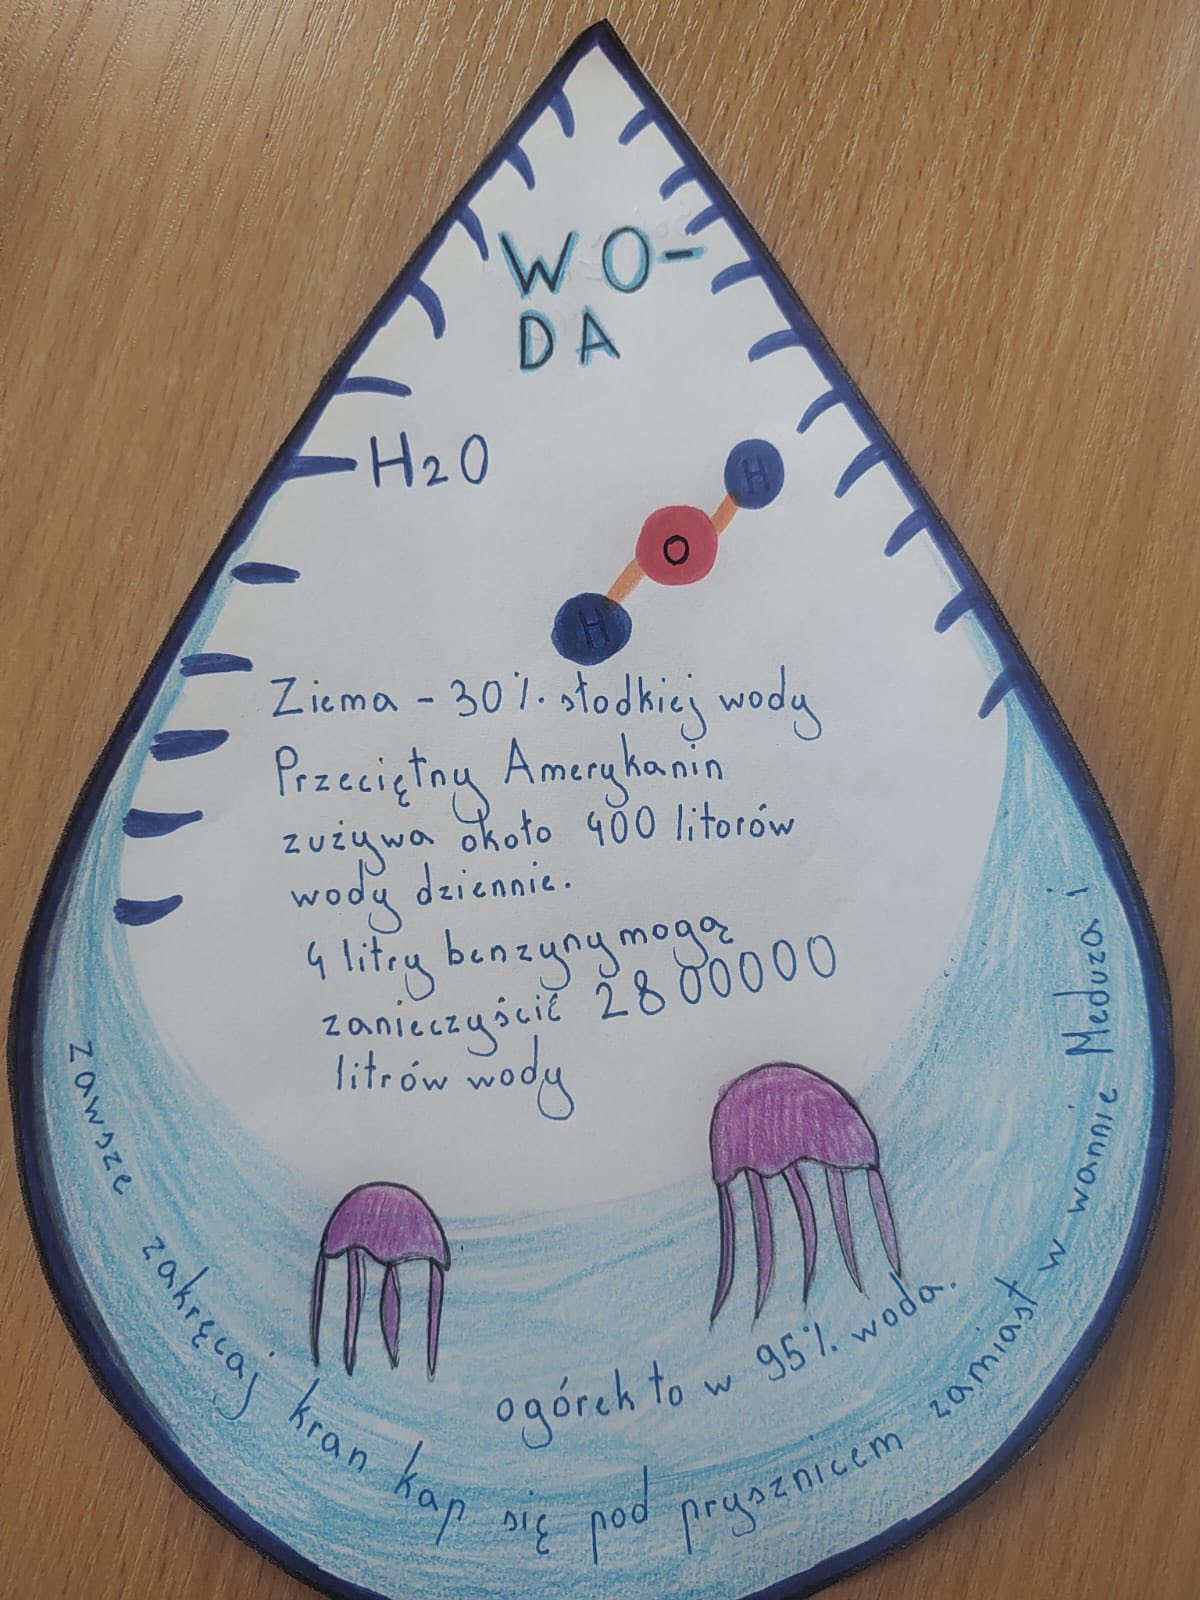 WO-
DA
H2O
H
O
H
Ziema - 30% słodkiej wody
Przeciętny Amerykanin
zużywa około 400 litorów
wody dziennie.
4 litry benzyny mogą
zanieczyścić 2800000
litrów wody
zawsze zakręcaj kran kap się pod prysznicem zamiast w wannie Meduza i
ogórek to w 95% woda.